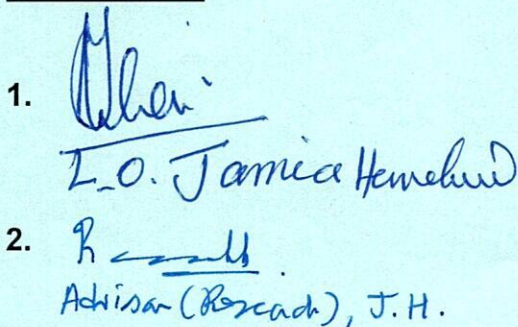 1.
I.O. Jamia Hamdard
2.
Advisor (Research), J.H.